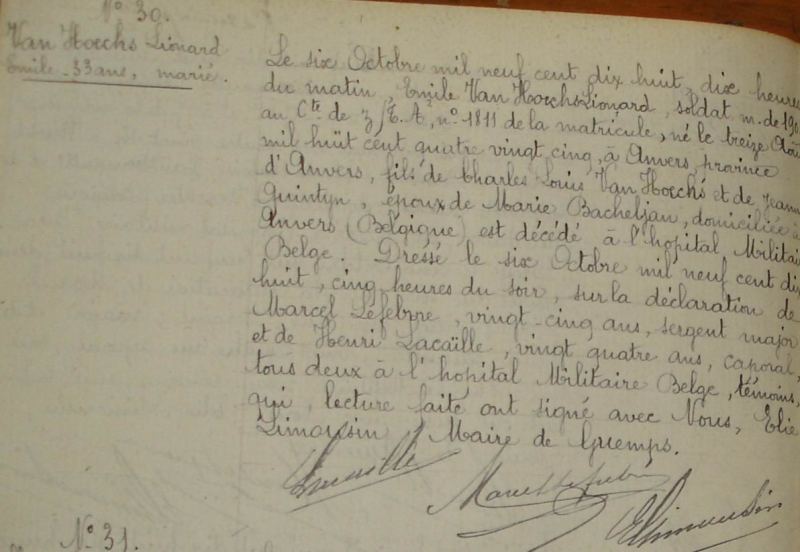 N° 30.
Van Hoechs Lionard
Emile _ 33 ans, marié.
Le six Octobre mil neuf cent dix huit, dix heures
du matin, Emile Van Hoechs Lionard, soldat m. de 190
au Cte de z /T. A, n° 1811 de la matricule, né le treize Aoû
mil huit cent quatre vingt cinq, à Anvers, province
d'Anvers, fils de Charles Louis Van Hoechs et de Jeanne
Quintyn, époux de Marie Bacheljan, domiciliée à
Anvers (Belgique) est décédé à l'hopital Militai
Belge. Dressé le six Octobre mil neuf cent dix
huit, cinq heures du soir, sur la déclaration de
Marcel Lefebvre, vingt-cinq ans, sergent major
et de Henri Lacaïlle, vingt quatre ans, caporal,
tous deux à l'hopital Militaire Belge, témoins,
qui, lecture faite ont signé avec Nous, Elie
Limousin, Maire de Guemps.
Lacaille
Marcel Lefebvre
E Limousin
N° 31.